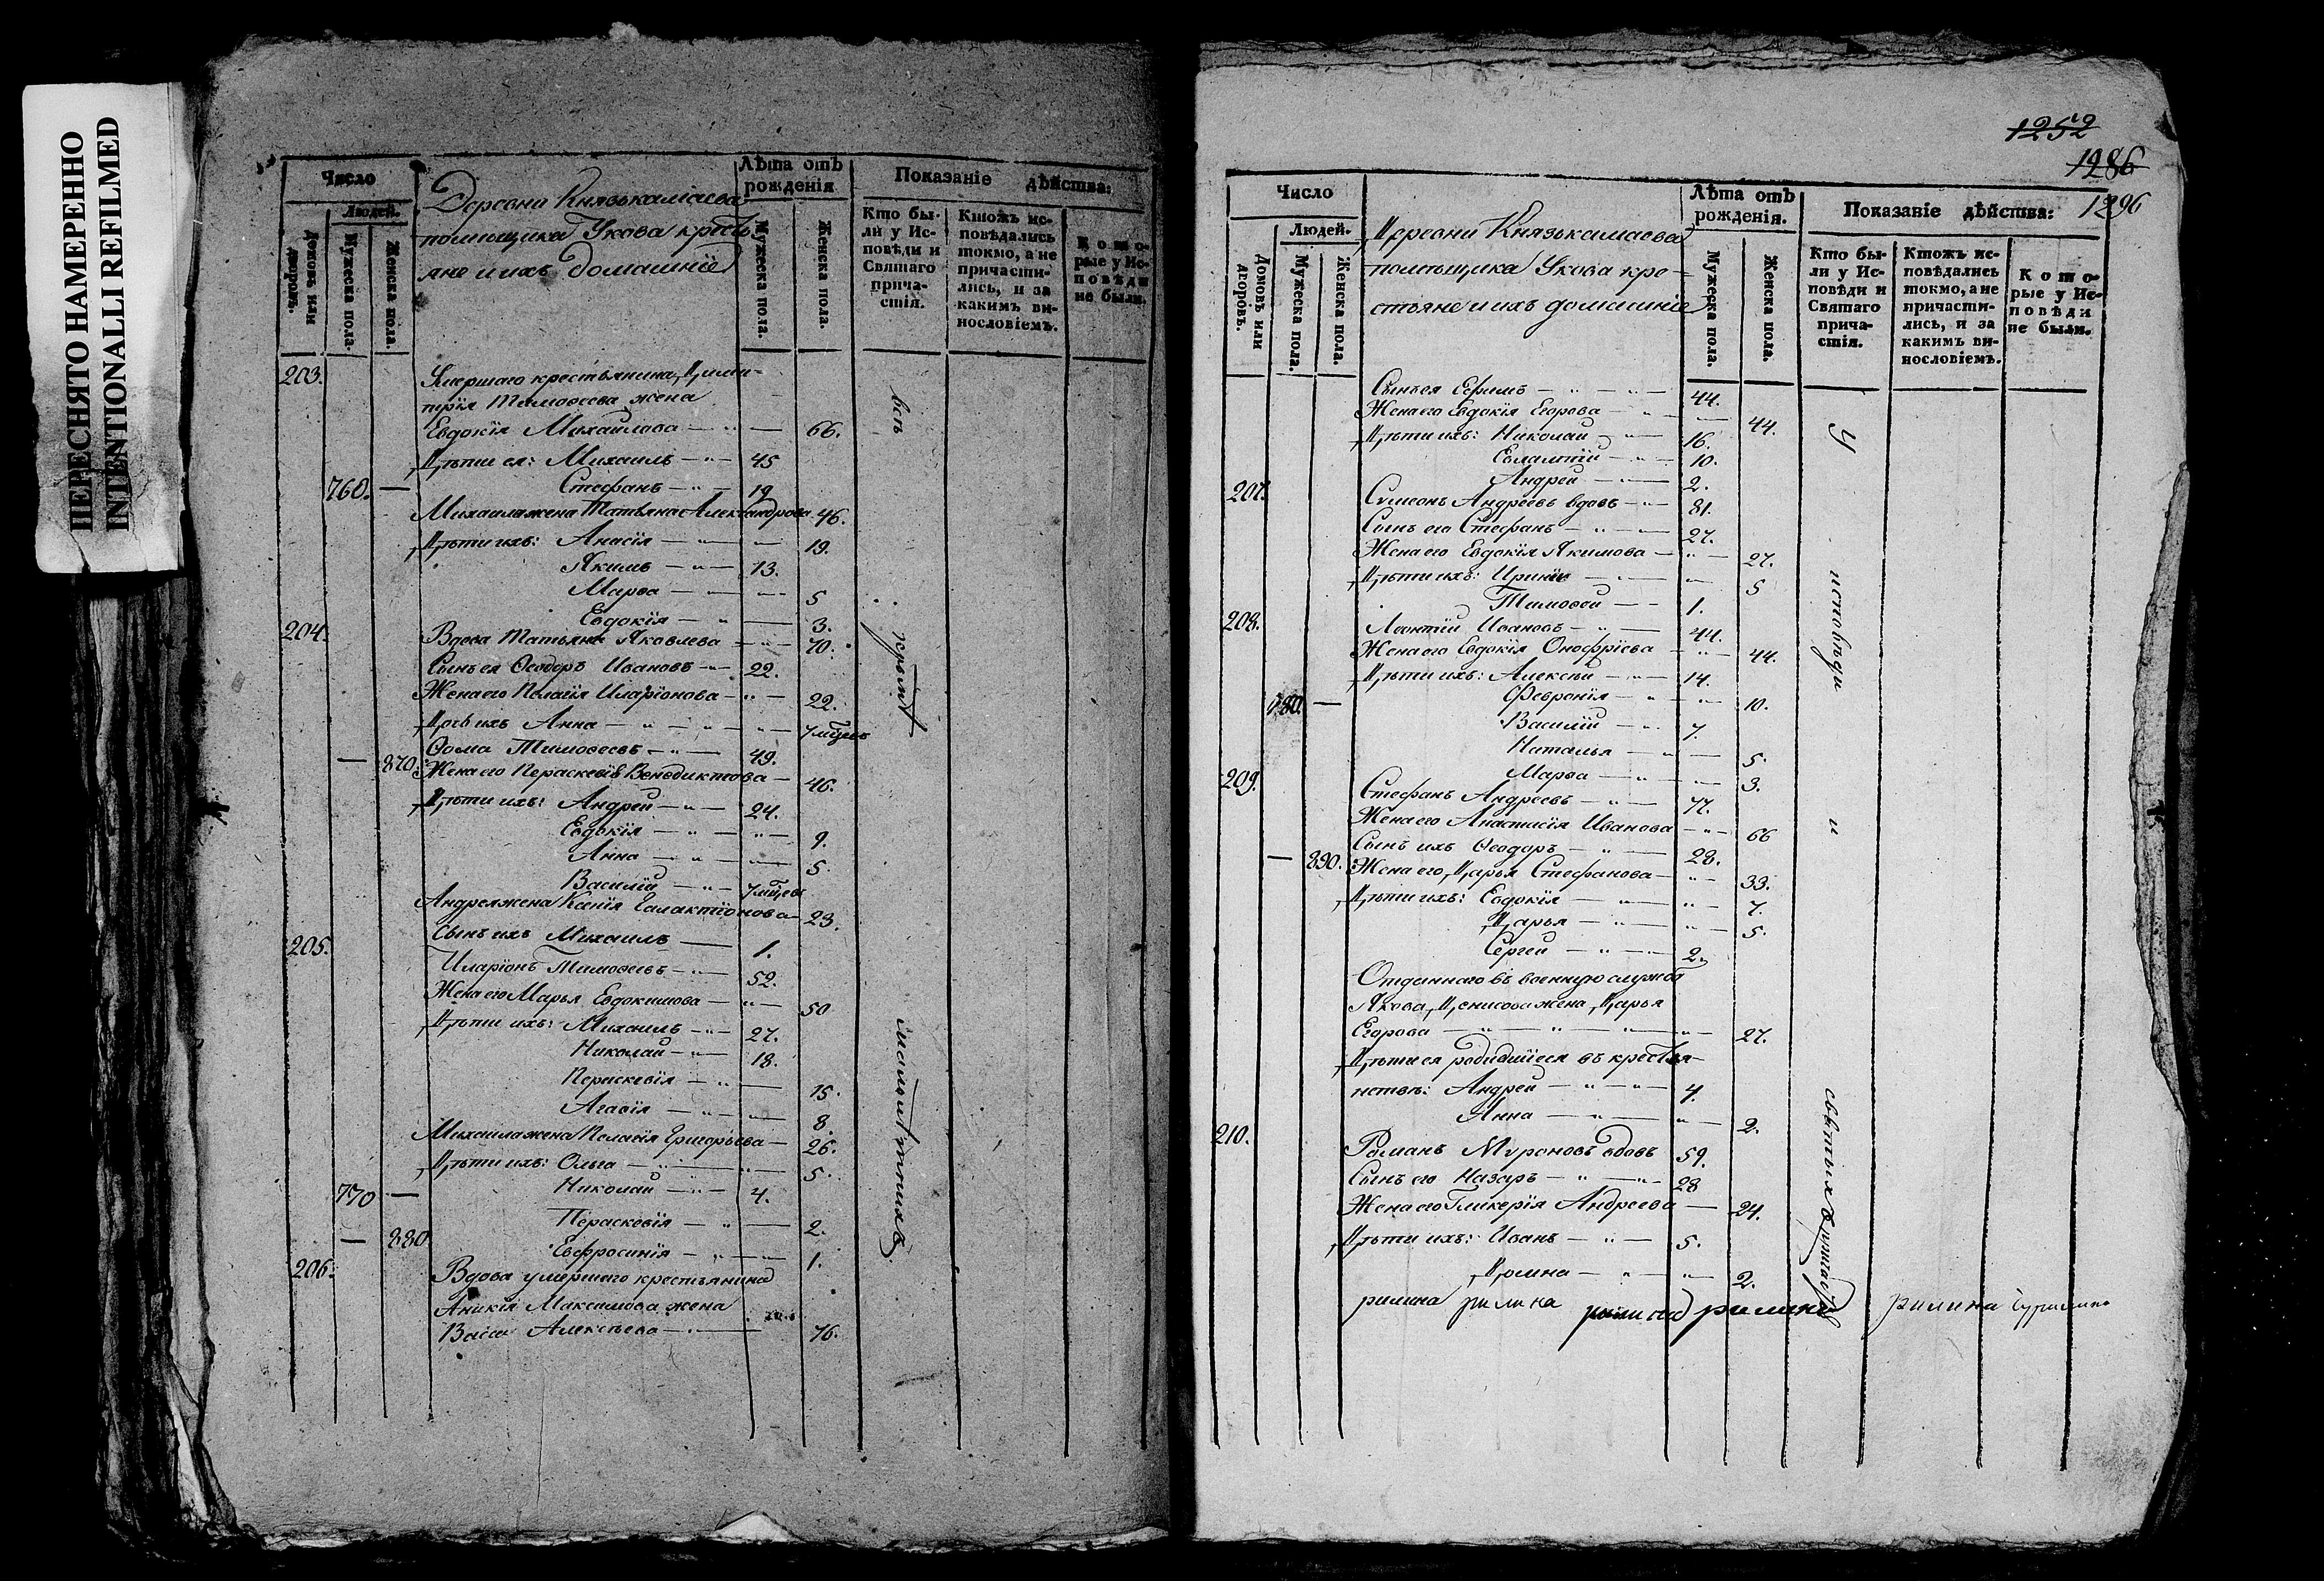 ПЕРЕСНЯТО НАМЕРЕННО
INTENTIONALLI REFILMED
Число
Людей.
Домовъ или дворовъ.
Мужеска пола.
Женска пола.
Деревни Князькамаева
помѣщика Укова кресть
яне и ихъ домашніе
Лѣта отъ рожденія
Мужеска пола.
Женска пола.
Показаніе дѣйства:
Кто бы-
ли у Ис-
повѣди и
Святаго
прича-
стія.
Ктожъ ис-
повѣдались
токмо, а не
причасти-
лись, и за
какимъ ви-
нословіемъ.
Кото-
рые у Ис-
повѣди
не были.
203. Умершаго крестьянина Дими-
трія Тимоѳеева жена
Евдокія Михаилова — 66.
Дѣти ея: Михаилъ — 45
760. — Стефанъ — 19
Михаила жена Татьяна Александрова 46.
Дѣти ихъ: Анасія — 19.
Якимъ — 13.
Марѳа — 5
Евдокія — 3.
204. Вдова Татьяна Яковлева — 70.
Сынъ ея Ѳеодоръ Ивановъ — 22.
Жена его Пелагія Иларіонова — 22.
Дочь ихъ Анна — 7 мѣсцевъ
Ѳома Тимоѳеевъ — 49.
— 870. Жена его Пераскевія Венедиктова — 46.
Дѣти ихъ: Андрей — 24.
Евдокія — 9.
Анна — 5.
Василій — 7 мѣсцевъ
Андрея жена Ксенія Галактіонова — 23.
Сынъ ихъ Михаилъ — 1.
205. Иларіонъ Тимоѳеевъ — 52.
Жена его Марья Евдокимова — 50
Дѣти ихъ: Михаилъ — 27.
Николай — 18.
Пераскевія — 15.
Агаѳія — 8.
Михаила жена Пелагія Григорьева — 26.
Дѣти ихъ: Ольга — 5.
770 — Николай — 4.
Пераскевія — 2.
— 880 Евфросинія — 1.
206. Вдова умершаго крестьянина
Аникія Максимова жена
Васса Алексѣева — 76.
всѣ
1252
1286
1296
Число
Людей.
Домовъ или дворовъ.
Мужеска пола
Женска пола.
Деревни Князькамаева
помѣщика Укова кре-
стьяне и ихъ домашніе
Лѣта отъ рожденія.
Мужеска пола.
Женска пола.
Показаніе дѣйства:
Кто бы-
ли у Ис-
повѣди и
Святаго
прича-
стія.
Ктожъ ис-
повѣдались
токмо, а не
причасти-
лись, и за
какимъ ви-
нословіемъ.
Кото-
рые у Ис-
повѣди
не были.
Сынъ ея Ефимъ — 44.
Жена его Евдокія Егорова — 44.
Дѣти ихъ: Николай — 16.
Евлампій — 10.
Андрей — 2.
207. Сѵмеонъ Андреевъ вдовъ — 81.
Сынъ его Стефанъ — 27.
Жена его Евдокія Якимова — 27.
Дѣти ихъ: Ирина — 5
Тимоѳей — 1.
208. Леонтій Ивановъ — 44.
Жена его Евдокія Онофріева — 44.
Дѣти ихъ: Алексѣй — 14.
780. — Февронія — 10.
Василій — 7.
Наталья — 5.
Марѳа — 3.
209. Стефанъ Андреевъ — 77.
Жена его Анастасія Иванова — 66
Сынъ ихъ Ѳеодоръ — 28.
— 890. Жена его Дарья Стефанова — 33.
Дѣти ихъ: Евдокія — 7.
Дарья — 5.
Сергей — 2.
Отданнаго въ военную службу
Якова Денисова жена Дарья
Егорова — 27.
Дѣти ея родившіеся въ крестья-
нствѣ: Андрей — 4.
Анна — 2.
210. Романъ Мироновъ вдовъ 59.
Сынъ его Назаръ — 28
Жена его Гликерія Андреева — 24.
Дѣти ихъ: Иванъ — 5.
Домна — 2.
у исповѣди и святыхъ